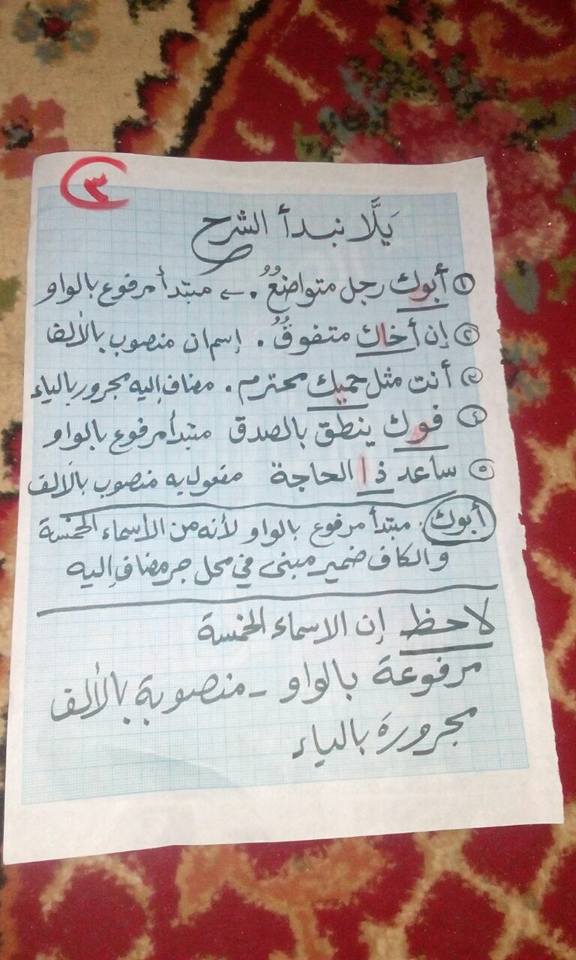 ٣
يَلَّا نبدأ الشرح
① أبوك رجل متواضعٌ . ← مبتدأ مرفوع بالواو
② إن أخاك متفوقٌ . إسم ان منصوب بالألف
③ أنت مثل حميك محترم . مضاف إليه مجرور بالياء
④ فوك ينطق بالصدق مبتدأ مرفوع بالواو
⑤ ساعد ذا الحاجة مفعول به منصوب بالألف
أبوك . مبتدأ مرفوع بالواو لأنه من الأسماء الخمسة
والكاف ضمير مبنى في محل جر مضاف إليه
لاحظ إن الاسماء الخمسة
مرفوعة بالواو - منصوبة بالألف
مجرورة بالياء